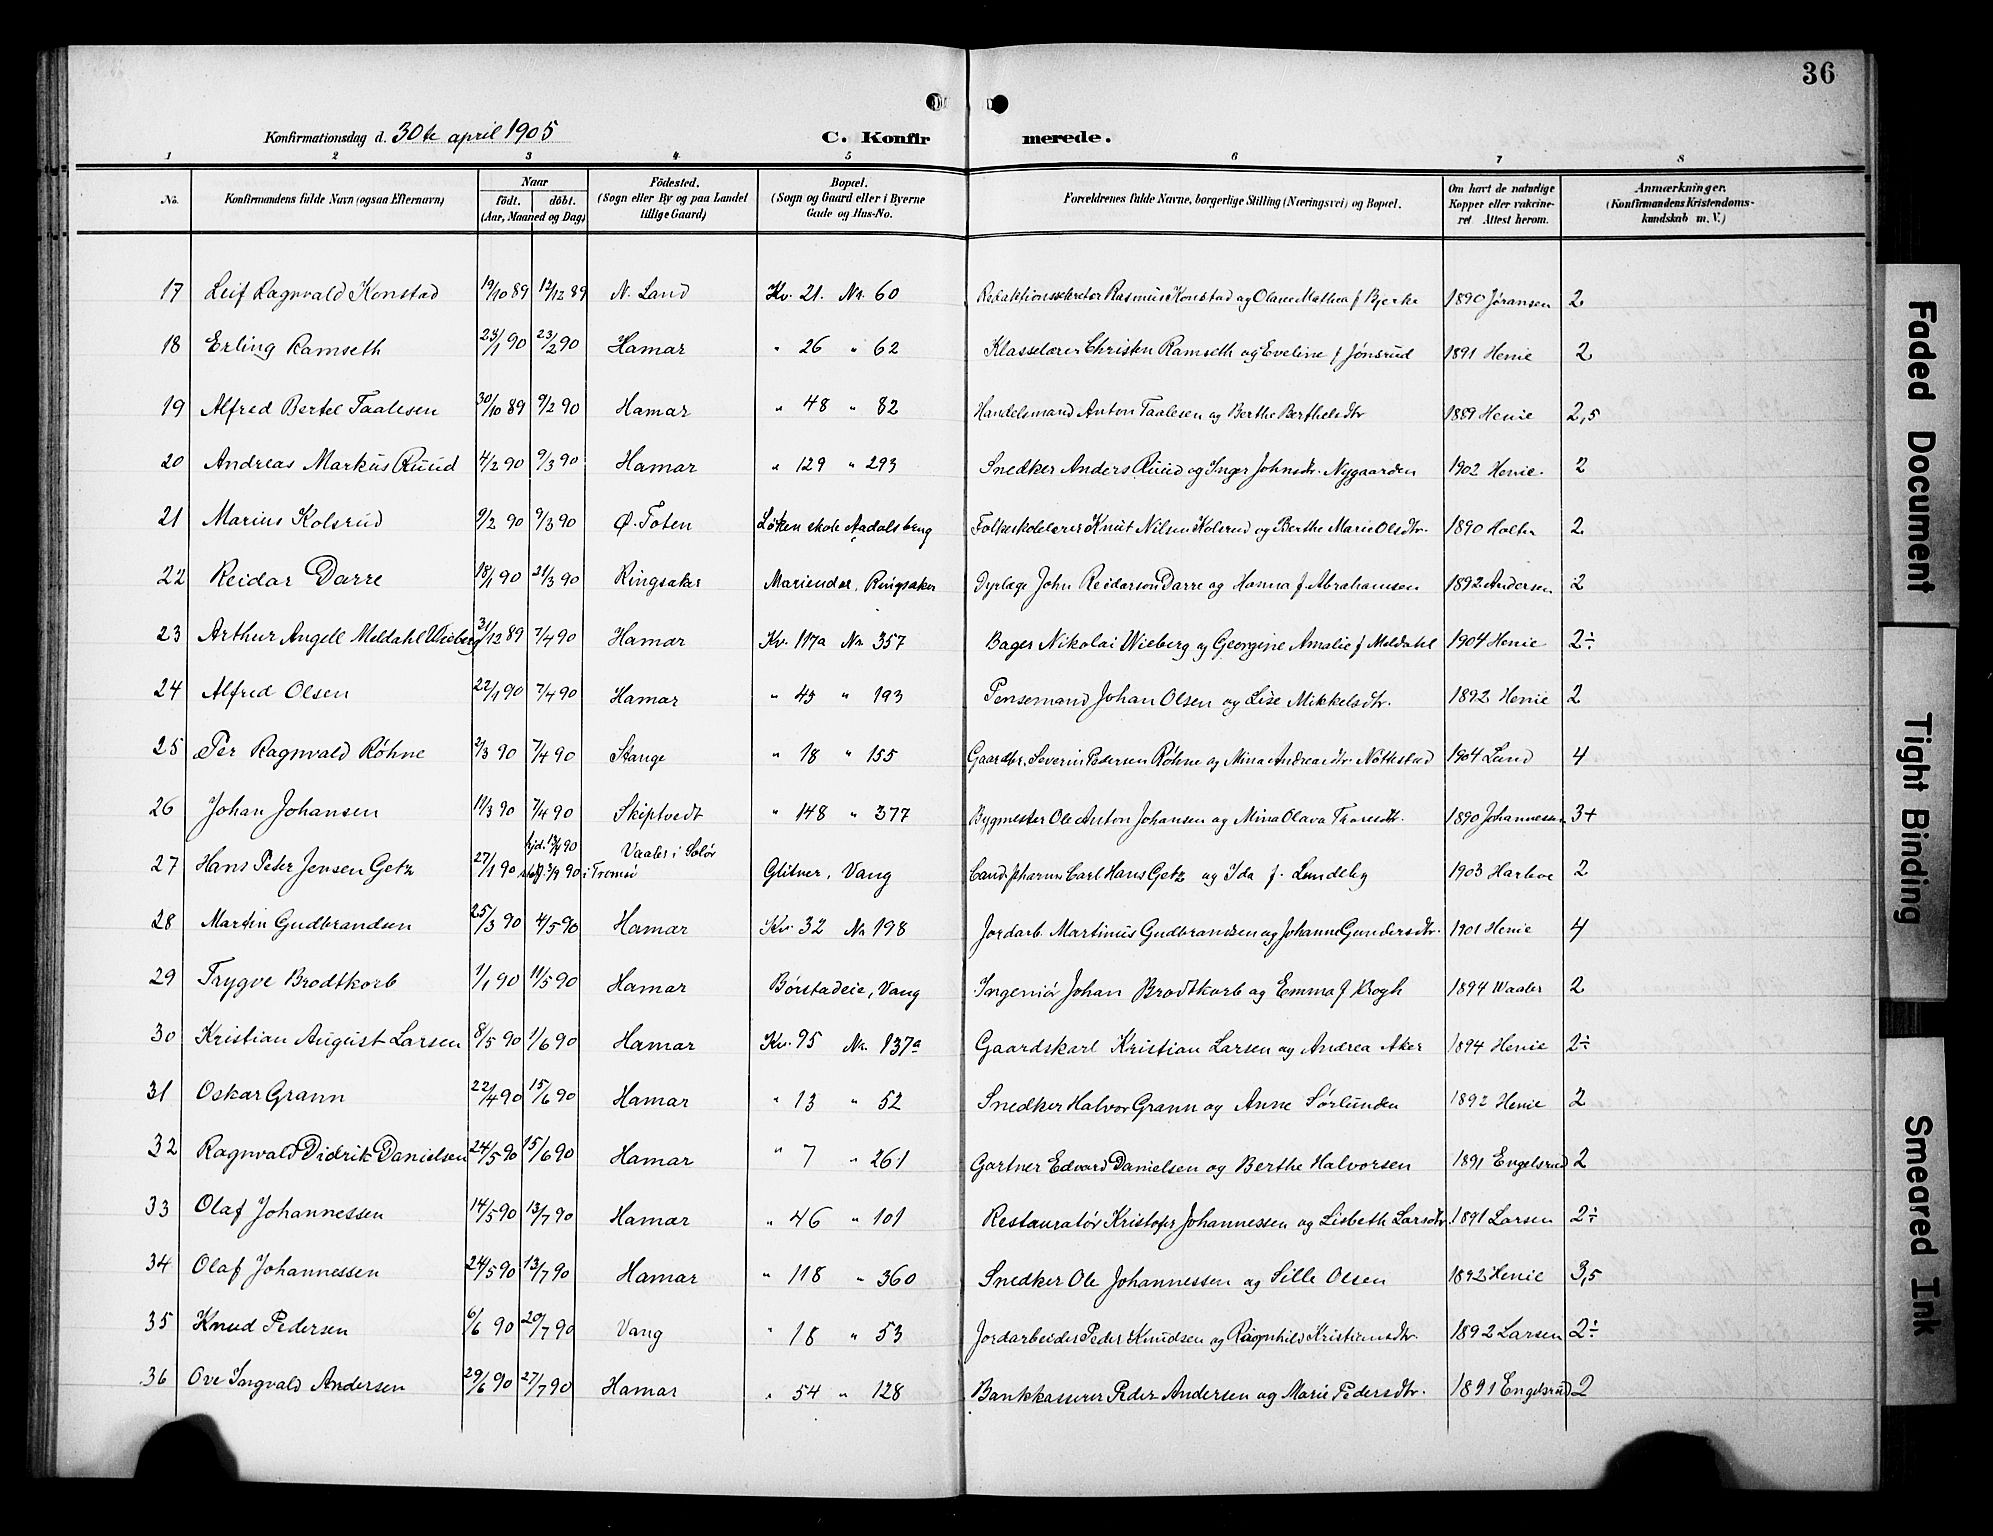 36
Konfirmationsdag d. 30te april 1905
C. Konfirmerede.
1 2 3 4 5 6 7 8
No. | Konfirmandens fulde Navn (ogsaa Efternavn) | Naar født. døbt. (Aar, Maaned og Dag) | Fødested. (Sogn eller By og paa Landet tillige Gaard) | Bopæl. (Sogn og Gaard eller i Byerne Gade og Hus-No. | Forældrenes fulde Navne, borgerlige Stilling (Næringsvei) og Bopæl. | Om havt de naturlige Kopper eller vakcineret Attest herom. | Anmærkninger. (Konfirmandens Kristendomskundskab m. V.)
17 Leif Ragnvald Konstad 19/10 89 12/12 89 N. Land Kv. 21. Nr. 60 Redaktionssekretær Rasmus Konstad og Olane Mathea f Bjerke 1890 Jøransen 2
18 Erling Ramseth 23/1 90 23/2 90 Hamar " 26 " 62 Klasselærer Christen Ramseth og Eveline f Jønsrud 1891 Henie 2
19 Alfred Bertel Taalesen 30/10 89 9/2 90 Hamar " 48 " 82 Handelsmand Anton Taalesen og Berthe Berthelsdtr 1889 Henie 2,5
20 Andreas Markus Ruud 4/2 90 9/3 90 Hamar " 129 " 293 Snedker Anders Ruud og Inger Johnsdtr. Nygaarden 1902 Henie. 2
21 Marius Kolsrud 9/2 90 9/3 90 Ø. Toten Løken skole Aadalsbrug Folkeskolelærer Knut Nilsen Kolsrud og Berthe Marie Olsdtr. 1890 Holter 2
22 Reidar Darre 18/1 90 21/3 90 Ringsaker Mariendal, Ringsaker Dyrlæge John Reidarson Darre og Hanna f. Abrahamsen 1892 Andersen 2
23 Arthur Angell Meldahl Wieberg 31/12 89 7/4 90 Hamar Kv. 117a Nr. 357 Bager Nikolai Wieberg og Georgine Amalie f Meldahl 1904 Henie 2÷
24 Alfred Olsen 22/1 90 7/4 90 Hamar " 45 " 193 Pensemand Johan Olsen og Lise Mikkelsdtr. 1892 Henie 2
25 Per Ragnvald Røhne 2/3 90 7/4 90 Stange " 18 " 155 Gaardbr. Severin Pedersen Røhne og Mina Andreasdtr. Nøttestad 1904 Lund 4
26 Johan Johansen 11/3 90 7/4 90 Skiptvedt " 148 " 377 Bygmester Ole Anton Johansen og Mina Olava Thoresdtr. 1890 Johannessen 3+
27 Hans Peter Jensen Getz 27/1 90 hjd. 13/4 90 stadf. 3/9 90 Vaaler i Solør i Tromsø Glitner, Vang Cand. pharm Carl Hans Getz og Ida f. Lundeby 1903 Harboe 2
28 Martin Gudbrandsen 25/3 90 4/5 90 Hamar Kv. 32 Nr 198 Jordarb. Martinus Gudbrandsen og Johanne Gundersdtr. 1901 Henie 4
29 Trygve Brodtkorb 1/1 90 11/5 90 Hamar Børstadeie, Vang Ingeniør Johan Brodtkorb og Emma f Krogh 1894 Waaler 2
30 Kristian August Larsen 8/5 90 1/6 90 Hamar Kv. 95 Nr. 137a Gaardskarl Kristian Larsen og Andrea Aker 1894 Henie 2÷
31 Oskar Grann 22/4 90 15/6 90 Hamar " 13 " 52 Snedker Halvor Grann og Anne Sørlunden 1892 Henie 2
32 Ragnvald Didrik Danielsen 24/5 90 15/6 90 Hamar " 7 " 261 Gartner Edvard Danielsen og Berthe Halvorsen 1891 Engelsrud 2
33 Olaf Johannessen 14/5 90 13/7 90 Hamar " 46 " 101 Restauratør Kristofer Johannessen og Lisbeth Larsdtr. 1891 Larsen 2÷
34 Olaf Johannessen 24/5 90 13/7 90 Hamar " 118 " 360 Snedker Ole Johannessen og Sille Olsen 1892 Henie 3,5
35 Knud Pedersen 6/6 90 20/7 90 Vang " 18 " 53 Jordarbeider Peder Knudsen og Ragnhild Kristiansdtr. 1892 Larsen 2÷
36 Ove Ingvald Andersen 29/6 90 27/7 90 Hamar " 54 " 128 Bankkasserer Peder Andersen og Marie Pedersdtr. 1891 Engelsrud 2
Faded Document
Tight Binding
Smeared Ink